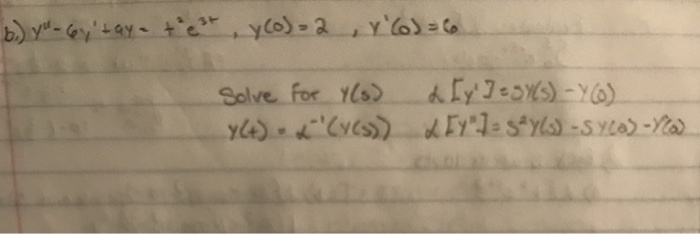 b.) y'' - 6y' + 9y = t²e³ᵗ , y(0) = 2 , y'(0) = 6
Solve For Y(s) ℒ[y'] = sY(s) - y(0)
y(t) = ℒ⁻¹(Y(s)) ℒ[y''] = s²Y(s) - sy(0) - y'(0)